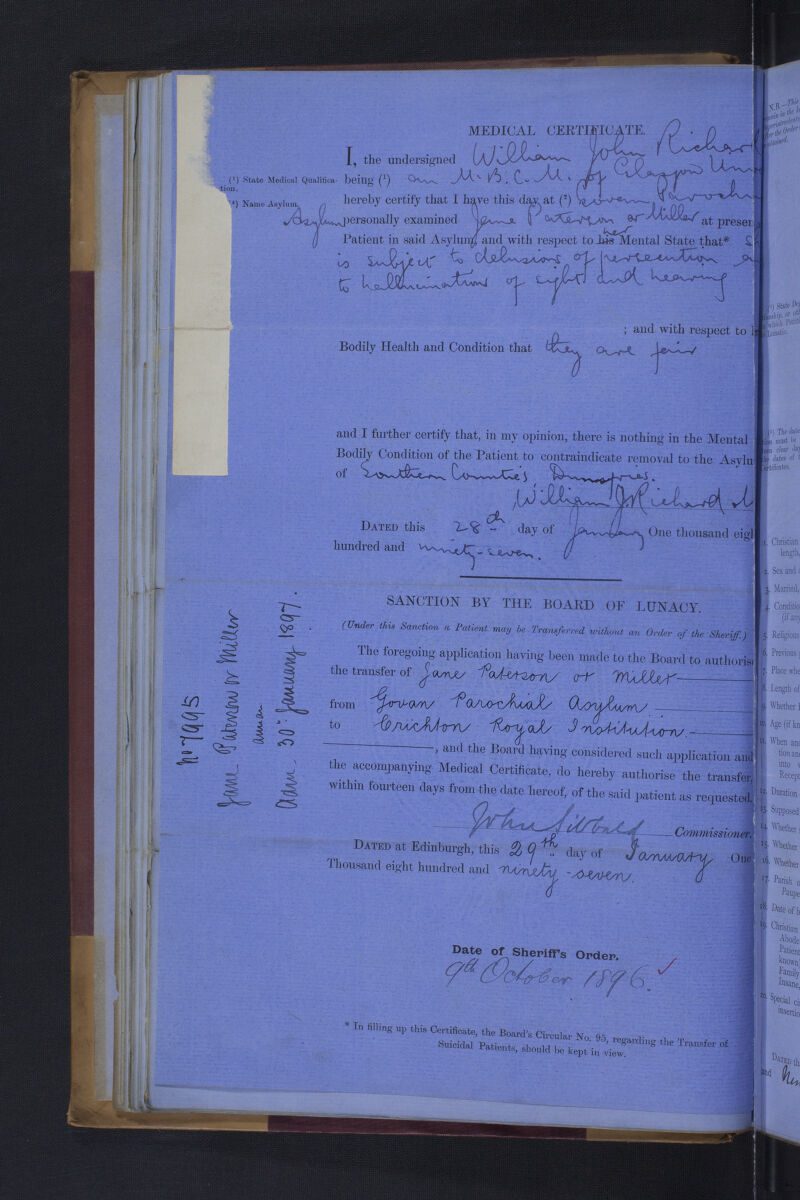 MEDICAL CERTIFICATE.
I, the undersigned William John Richard
(1) State Medical Qualification.
being (1) an M.B.C.M. of Glasgow
(2) Name Asylum.
hereby certify that I have this day, at (2) Govan Parochial
Asylum personally examined Jane Paterson or Miller at present
Patient in said Asylum, and with respect to his her Mental State that*
is subject to delusions of persecution
to hallucinations of sight and hearing
; and with respect to
Bodily Health and Condition that they are fair
and I further certify that, in my opinion, there is nothing in the Mental
Bodily Condition of the Patient to contraindicate removal to the Asylum
of Southern Counties, Dumfries.
William J Richard
DATED this 28th day of January One thousand eight
hundred and ninety-seven.
SANCTION BY THE BOARD OF LUNACY.
(Under this Sanction a Patient may be Transferred without an Order of the Sheriff.)
The foregoing application having been made to the Board to authorise
the transfer of Jane Paterson or Miller
from Govan Parochial Asylum
to Crichton Royal Institution.
, and the Board having considered such application and
the accompanying Medical Certificate, do hereby authorise the transfer,
within fourteen days from the date hereof, of the said patient as requested.
John Sibbald Commissioner.
DATED at Edinburgh, this 29th day of January One
Thousand eight hundred and ninety-seven.
Date of Sheriff's Order.
9th October 1896.
* In filling up this Certificate, the Board's Circular No. 95, regarding the Transfer of
Suicidal Patients, should be kept in view.
No 7995
Jane Paterson or Miller
Adm. 30th January 1897.